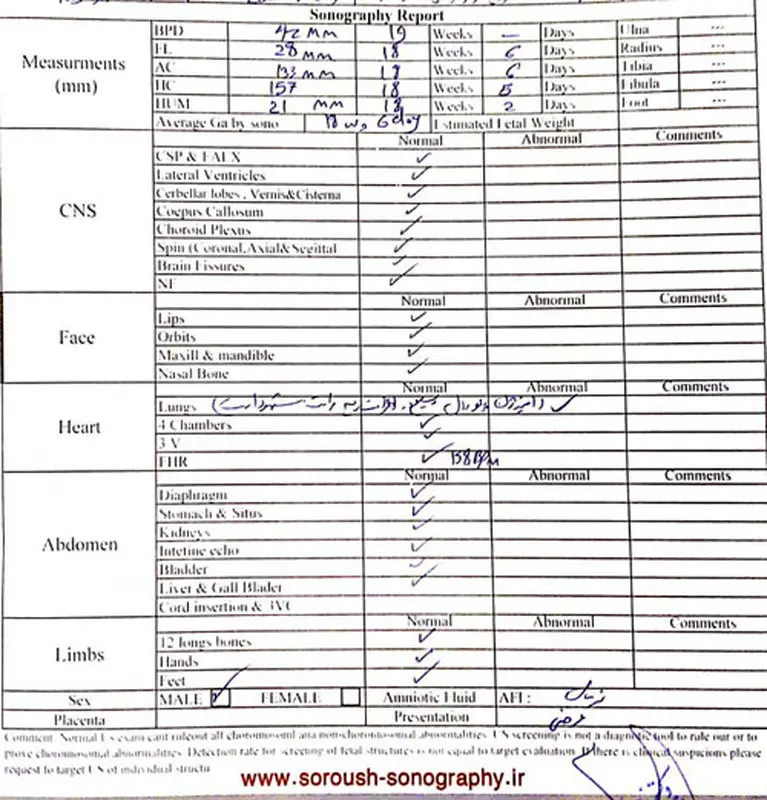 Sonography Report
Measurments (mm)
BPD 42 mm 19 Weeks — Days Ulna ---
FL 28 mm 18 Weeks 6 Days Radius ---
AC 133 mm 18 Weeks 6 Days Tibia ---
HC 157 18 Weeks 5 Days Fibula ---
HUM 21 mm 18 Weeks 2 Days Foot ---
Average Ga by sono 18 w, 6 day Estimated Fetal Weight
CNS
Normal Abnormal Comments
CSP & FALX ✓
Lateral Ventricles ✓
Cerbellar lobes , Vernis&Cisterna ✓
Coepus Callosum ✓
Choroid Plexus ✓
Spin (Coronal,Axial&Segittal ✓
Brain Fissures ✓
NF ✓
Face
Normal Abnormal Comments
Lips ✓
Orbits ✓
Maxill & mandible ✓
Nasal Bone ✓
Heart
Normal Abnormal Comments
Lungs ✓
4 Chambers ✓
3 V ✓
FHR ✓ 158 BPM
Abdomen
Normal Abnormal Comments
Diaphragm ✓
Stomach & Situs ✓
Kidneys ✓
Inteline echo ✓
Bladder ✓
Liver & Gall Blader ✓
Cord insertion & 3VC
Limbs
Normal Abnormal Comments
12 longs bones ✓
Hands ✓
Feet ✓
Sex MALE ✓ FEMALE Amniotic Fluid AFI : نرمال
Placenta Presentation عرضی
Comment: Normal Us exam cant ruleout all choromosoml ana non-chorontosomal abnormalities. US screening is not a diagnostic tool to rule out or to
prove choromosomal abnormalities. Detection rate for screening of fetal structures is not equal to target evaluation. If there is clinical suspacions please
request to target US of individual structu
www.soroush-sonography.ir